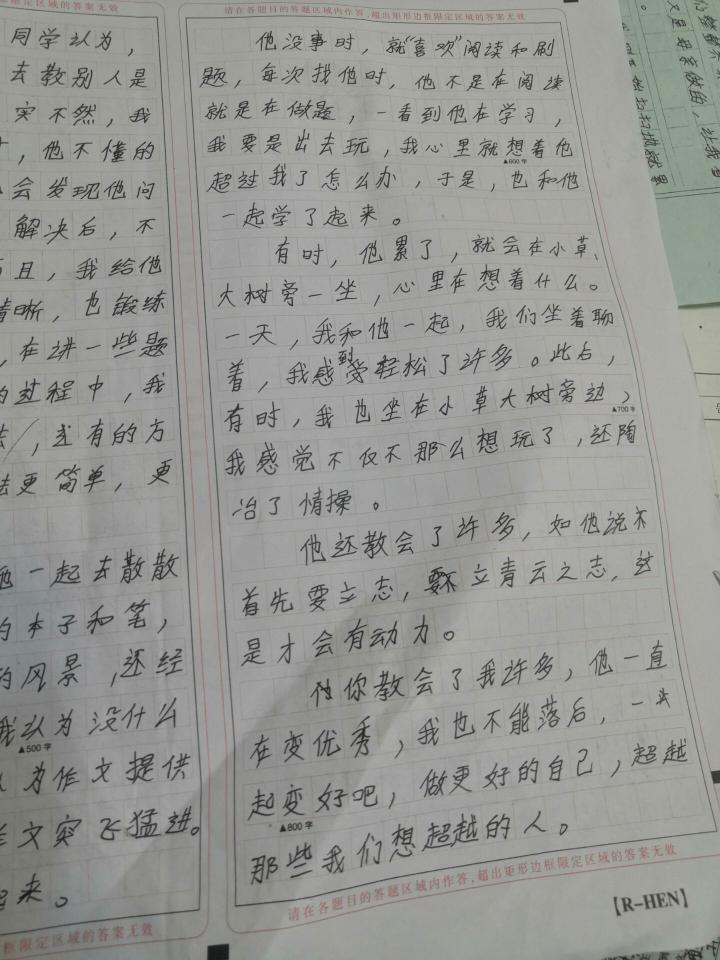 同学认为，
去教别人是
实不然，我
，他不懂的
会发现他问
解决后，不
且，我给他
清晰，也锻练
，在讲一些题
的过程中，我
法，或有的方
法更简单，更
他一起去散散
的本子和笔，
的风景，还经
我认为没什么
▲500字
为作文提供
作文突飞猛进。
起来。
框限定区域的答案无效
请在各题目的答题区域内作答，超出矩形边框限定区域的答案无效
他没事时，就"喜欢"阅读和刷
题，每次找他时，他不是在阅读
就是在做题，一看到他在学习，
我要是出去玩，我心里就想着他
▲600字
超过我了怎么办，于是，也和他
一起学了起来。
有时，他累了，就会在小草、
大树旁一坐，心里在想着什么。
一天，我和他一起，我们坐着聊
着，我感到轻松了许多。此后，
有时，我也坐在小草大树旁边，
▲700字
我感觉不仅不那么想玩了，还陶
冶了情操。
他还教会了许多，如他说不
首先要立志，要立青云之志，这
是才会有动力。
你教会了我许多，他一直
在变优秀，我也不能落后，一
起变好吧，做更好的自己，超越
▲800字
那些我们想超越的人。
请在各题目的答题区域内作答，超出矩形边框限定区域的答案无效
【R-HEN】